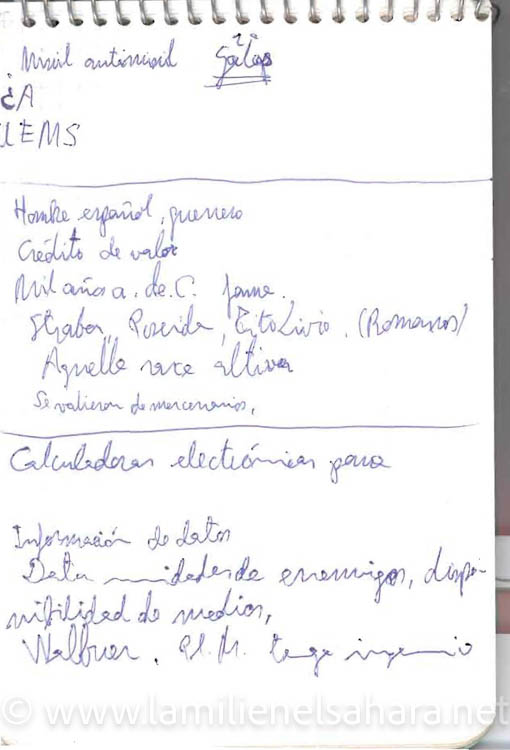 Misil antimisil
¿A
UEMS
Hombre español, guerrero
Crédito de valor
Mil años a. de C. fama.
Strabon, Poseida, Tito Livio. (Romanos)
Aquella raza altiva
Se valieron de mercenarios.
Calculadoras electrónicas para
Información de datos
Data unidades de enemigos, dispo-
nibilidad de medios,
P.E.M. tenga ingenio
© www.lamilienelsahara.net